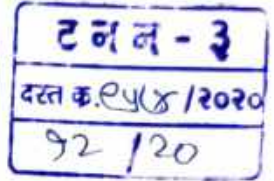 ट न न - ३
दस्त क्र. /२०२०
१२ / २०